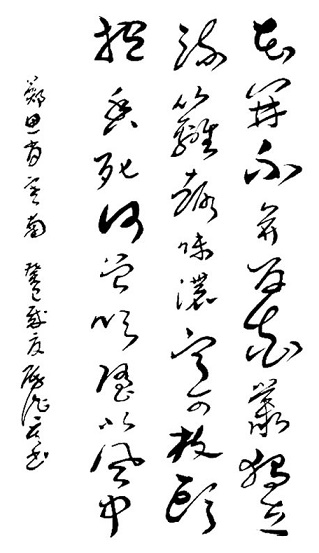 花開不並百花叢獨立
疏籬趣味濃寧可枝頭
抱香死何曾吹墮北風中
鄭思肖 菊 癸巳 書